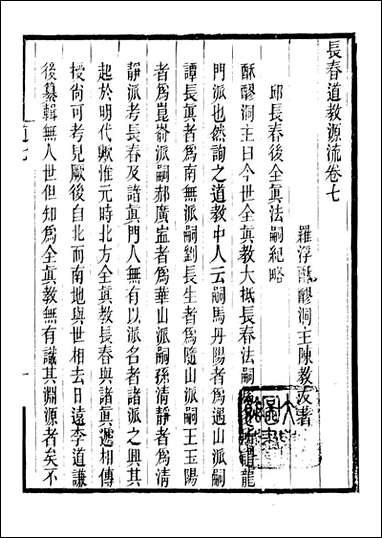 長春道教源流卷七
羅浮酥醪洞主陳教友著
邱長春後全眞法嗣紀略
酥醪洞主曰今世全眞教大抵長春法嗣龍
門派也然詢之道教中人云嗣馬丹陽者爲遇山派嗣
譚長眞者爲南無派嗣劉長生者爲隨山派嗣王玉陽
者爲崑崳派嗣郝廣甯者爲華山派嗣孫清靜者爲清
靜派考長春及諸眞門人無有以派名者諸派之興其
起於明代歟惟元時北方全眞教長春與諸眞遞相傳
授尚可考見厥後自北而南地與世相去日遠李道謙
後纂輯無人世但知爲全眞教無有識其淵源者矣不
道七
一